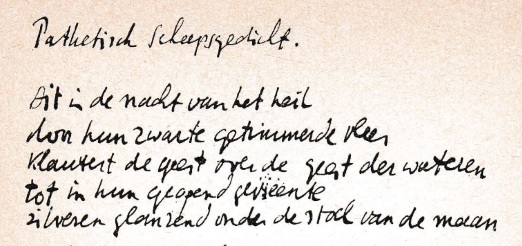 Pathetisch Scheepsgedicht.
Dit in de nacht van het heil
door hun zwarte getimmerde vlees
klautert de geest over de geest der wateren
tot in hun geopend
zilveren glanzend onder de stoel van de maan